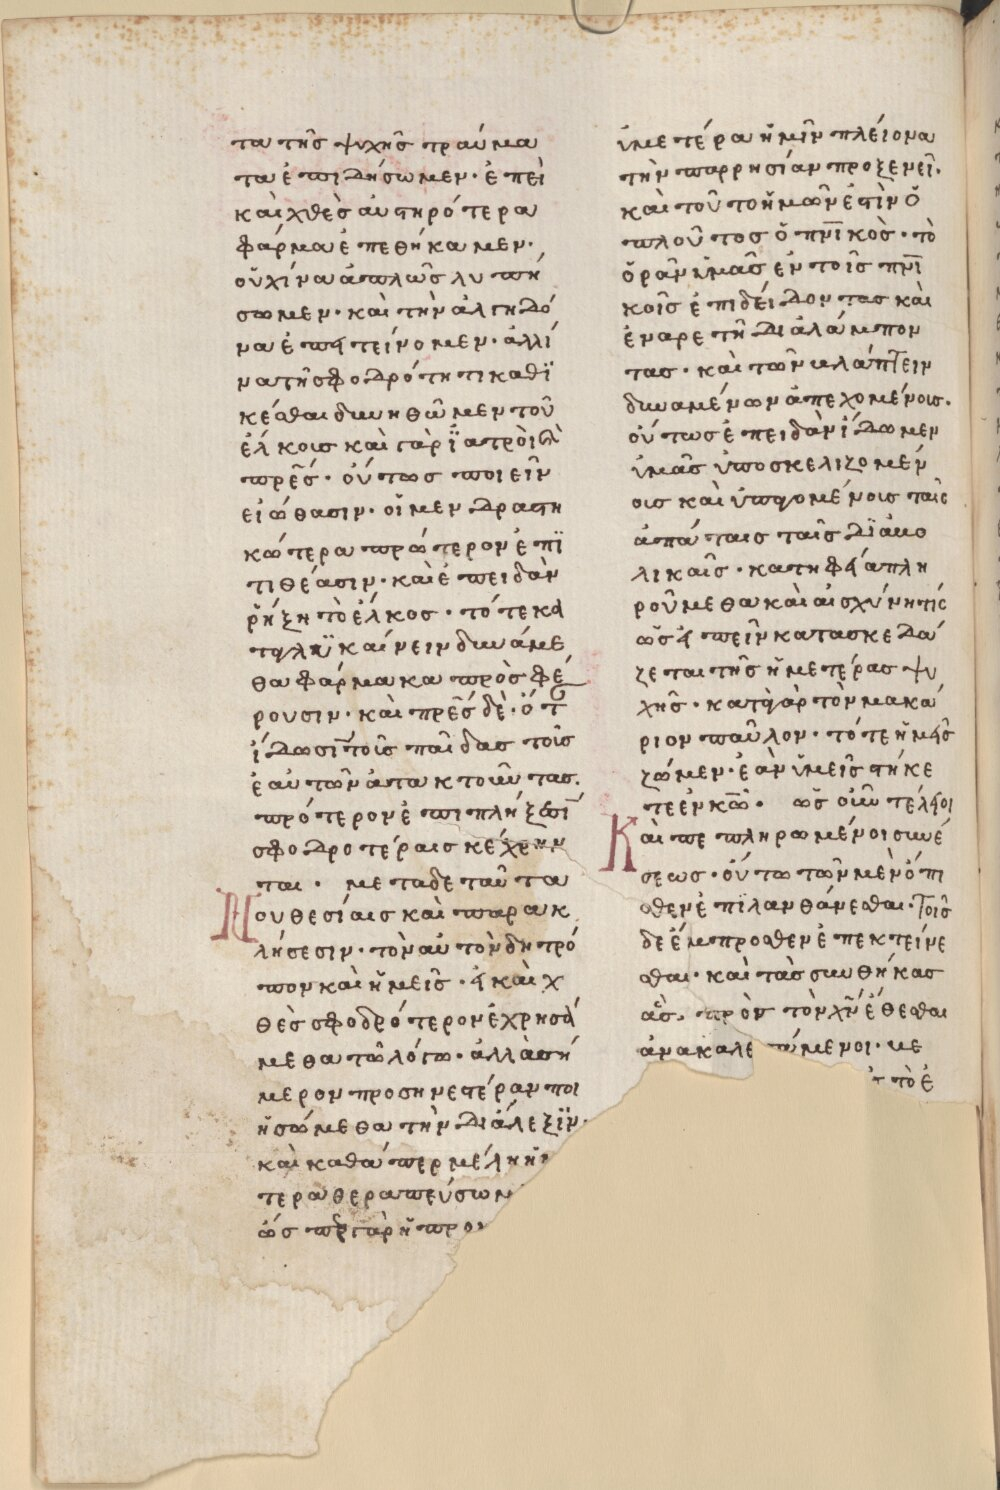 τα τῆς ψυχῆς τραύμα
τα ἐπιδήσωμεν· ἐπεὶ
καὶ χθὲς αὐστηρότερα
φάρμα ἐπεθήκαμεν·
οὐχ ἵνα ἁπλῶς λυπή
σωμεν· καὶ τὴν ἀλγηδό
να ἐπιτείνομεν· ἀλλ ἵ
να τῆ σφοδρότητι καθϊ
κέσθαι δυνηθῶμεν τοῦ
ἕλκους καὶ γὰρ ἰατρὸι
πρες· οὕτως ποιεῖν
εἰώθασιν· οἱ μὲν δραστη
κώτερα πρώτερον ἐπϊ
τιθέασιν· καὶ ἐπειδὰν
ῥήξη τὸ ἕλκος· τότε κα
ταγλυκαίνειν δυνάμε
θα φάρμακα πρὸσφέ
ρουσιν· καὶ πρες δὲ· ὅτ
ἴδωσι τοῖς παῖδας τοῖς
ἑαυτῶν ἀτακτοῦντας.
πρότερον ἐπιπλήξεσι
σφοδροτέραις κέχρην
ται· μετα δε ταῦτα
Νουθεσίαις καὶ παρακ
λήσεσιν· τὸν αὐτὸν δη τρό
πον καὶ ἡμεῖς· εἰ καὶ χ
θὲς σφοδρότερον ἐχρησά
μεθα τῶ λόγω· ἀλλὰ σή
μερον προσηνεστέραν ποι
ησώμεθα τὴν διάλεξϊν·
καὶ καθάπερ μέλη ἡ
τερα θεραπεύσωμ
ὥσπερ γὰρ ἡ προ
ὑμετέρα ἡμῖν πλείονα
τὴν παρρησίαν προξενεῖ·
καὶ τοῦτο ἡμῶν ἐστὶν ὁ
πλοῦτος ὁ πνικὸς· τὸ
ὁρᾶν ὑμᾶς ἐν τοῖς πνι
κοῖς ἐπιδείδοντας καὶ
ἐν αρετῆ διαλάμπον
τας· καὶ τῶν βλάπτειν
δυναμένων ἀπεχομένοις·
οὕτως ἐπειδὰν ἴδωμεν
ὑμᾶς ὑποσκελιζομέν
οις καὶ ὑπαγομένοις ταῖς
ἀπάταις ταῖς διαβο
λικαῖς· κατηφεία πλη
ροῦμεθα καὶ αἰσχύνη τίς
ὡς εἰπεῖν κατασκεδά
ζεται τῆς ἡμετέρας ψυ
χῆς· κατα γὰρ τὸν μακά
ριον παῦλον· τότε ἡμεῖς
ζῶμεν· ἐὰν ὑμεῖς στήκε
τε ἐν κω· ὡς οὖν τέλειοι
Και πεπληρωμένοι συνέ
σεως· οὕτω τῶν μὲν ὄπι
σθεν ἐπϊλανθάνεσθαι· Τοῖς
δε ἔμπροσθεν ἐπεκτείνε
σθαι· καὶ τὰς συνθήκας
ἃς πρὸς τὸν χν ἔθεσθαι
ἀνακαλε μενοι· βε
τὸ ἐ